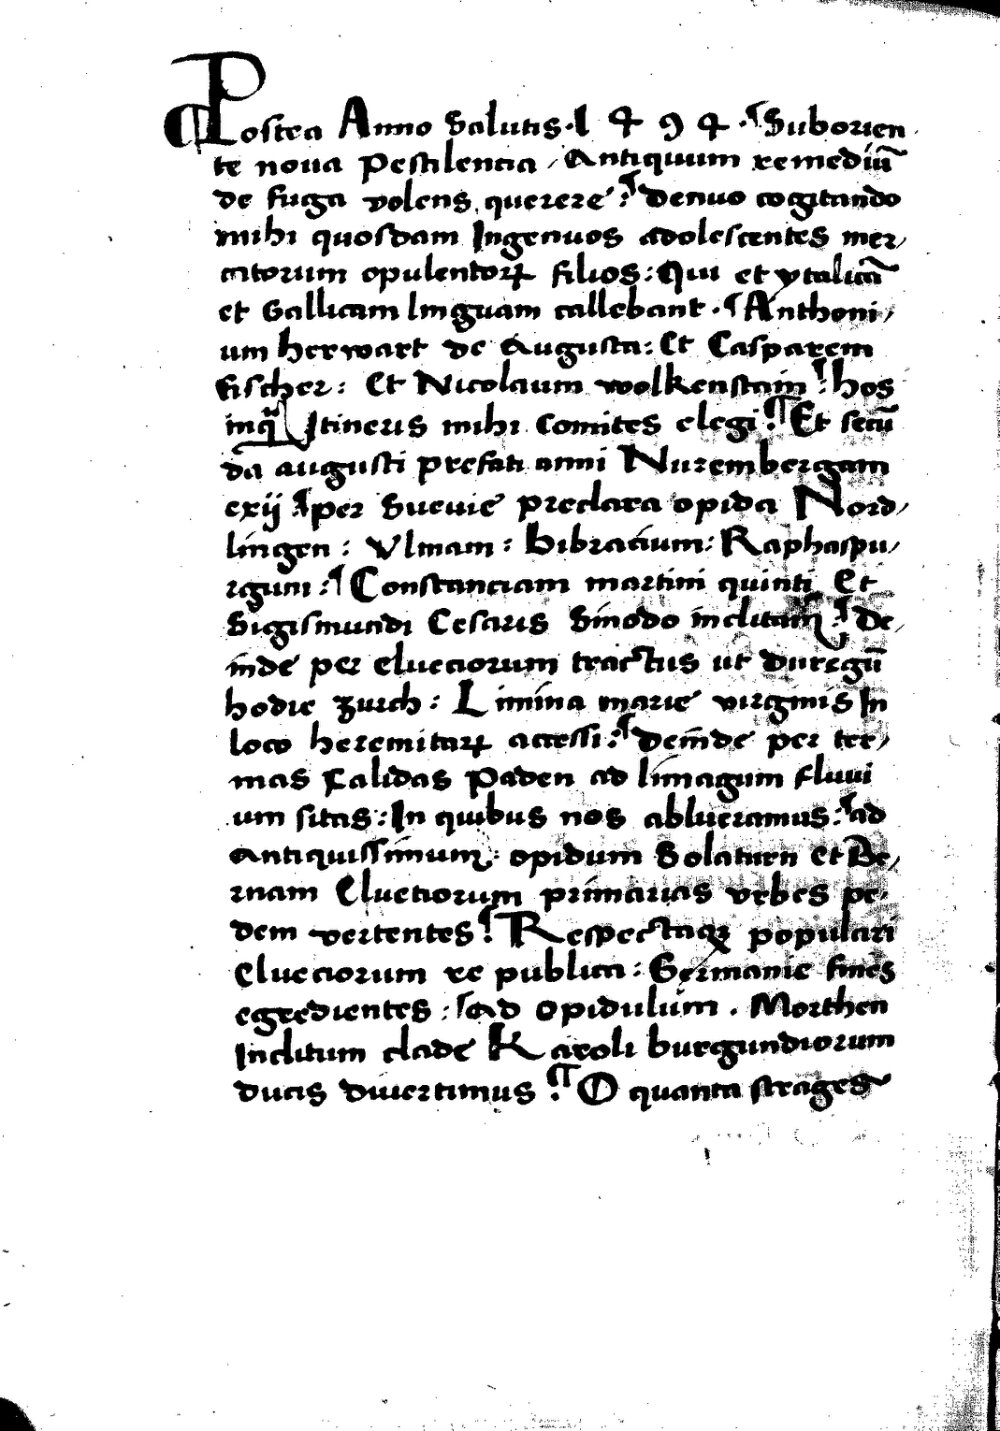 ¶Postea Anno Salutis·1494·¶Suborien
te noua Pestilencia / Antiquum remediū
de fuga volens querere:¶Denuo cogitando
mihi quosdam Ingenuos adolescentes mer/
catorum opulentoꝝ filios: Qui et ytalicā
et Gallicam linguam callebant·¶Anthoni/
um herwart de Augusta: Et Casparem
fischer: Et Nicolaum wolkenstain:¶hos
inqͣ Itineris mihi comites elegi:¶Et secū
da augusti prefati anni Nurembergam
exij ¶per Sueuie preclara opida Nord/
lingen: Vlmam: Bibracium: Raphaspu/
rgum:¶Constanciam martini quinti Et
Sigismundi Cesaris Sinodo inclitam:¶De/
inde per elueciorum tractus ut duregū
hodie zurch: Limina marie virginis In
loco heremitaꝝ accessi:¶Deinde per ter/
mas Calidas Paden ad limagum fluui
um sitas: In quibus nos ablueramus:¶ad
antiquissimum: opidum Solaturn et Be/
rnam Elueciorum primarias vrbes pe/
dem vertentes:¶Respectaqꝫ populari
Elueciorum re publica: Germanie fines
egredientes:¶ad opidulum. Morthen
Inclitum clade Karoli burgundiorum
ducis diuertimus:¶O quanta strages